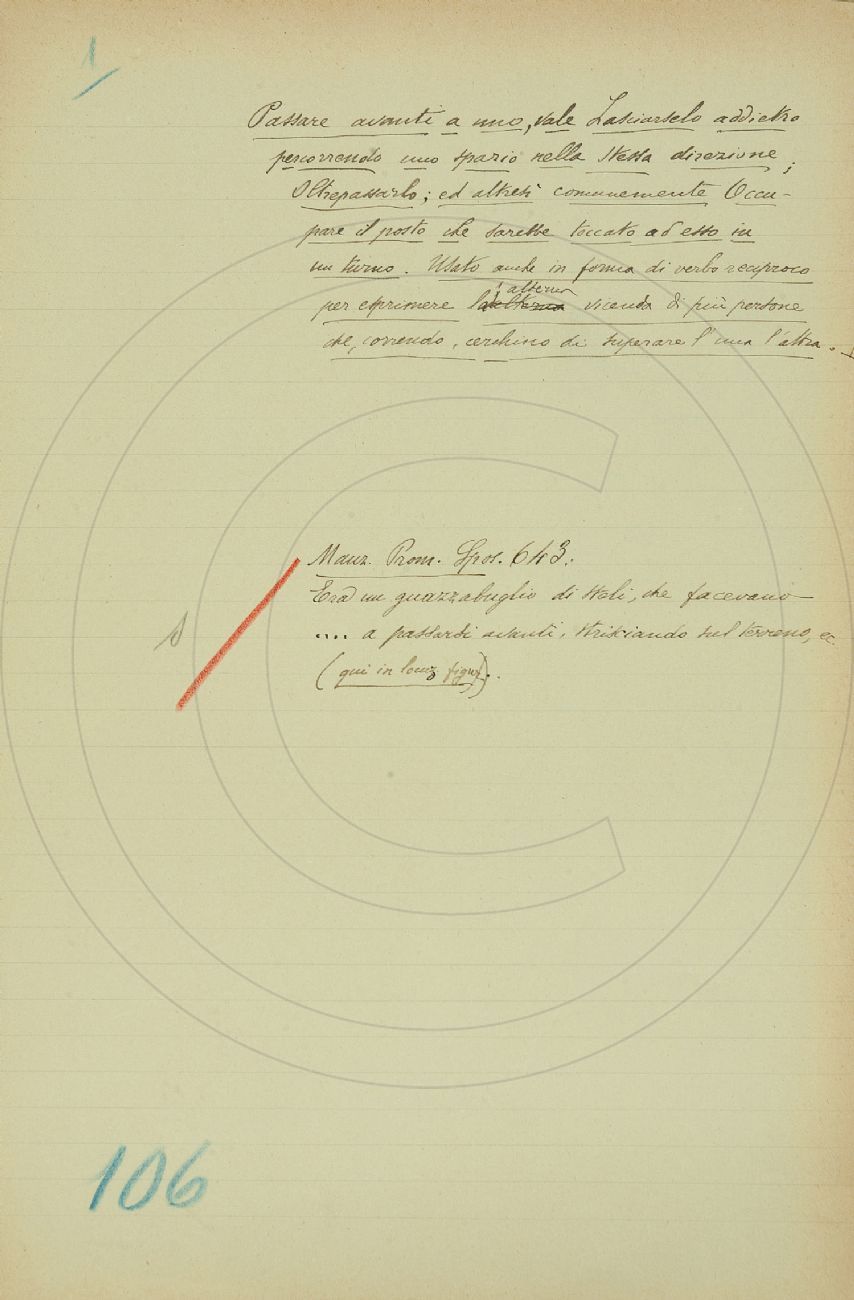 1
Passare avanti a uno, vale Lasciarselo addietro
percorrendo uno spazio nella stessa direzione;
Oltrepassarlo; ed altresì comunemente Occu-
pare il posto che sarebbe toccato ad esso in
un turno. Usato anche in forma di verbo reciproco
l'alterna
per esprimere vicenda di più persone
che, correndo, cerchino di superare l'una l'altra. —
Manz. Prom. Spos. 643.:
Era un guazzabuglio di steli, che facevano
.... a passarsi avanti, strisciando sul terreno, ec.
(qui in locuz figur).
106